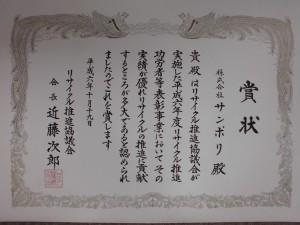 賞状
株式会社 サンポリ 殿
貴殿はリサイクル推進協議会が
実施した平成六年度リサイクル推進
功労者等表彰事業においてその
実績が優れリサイクルの推進に貢献
するところが多大であると認められ
ましたのでこれを賞します
平成六年十月十九日
リサイクル推進協議会
会長 近藤次郎